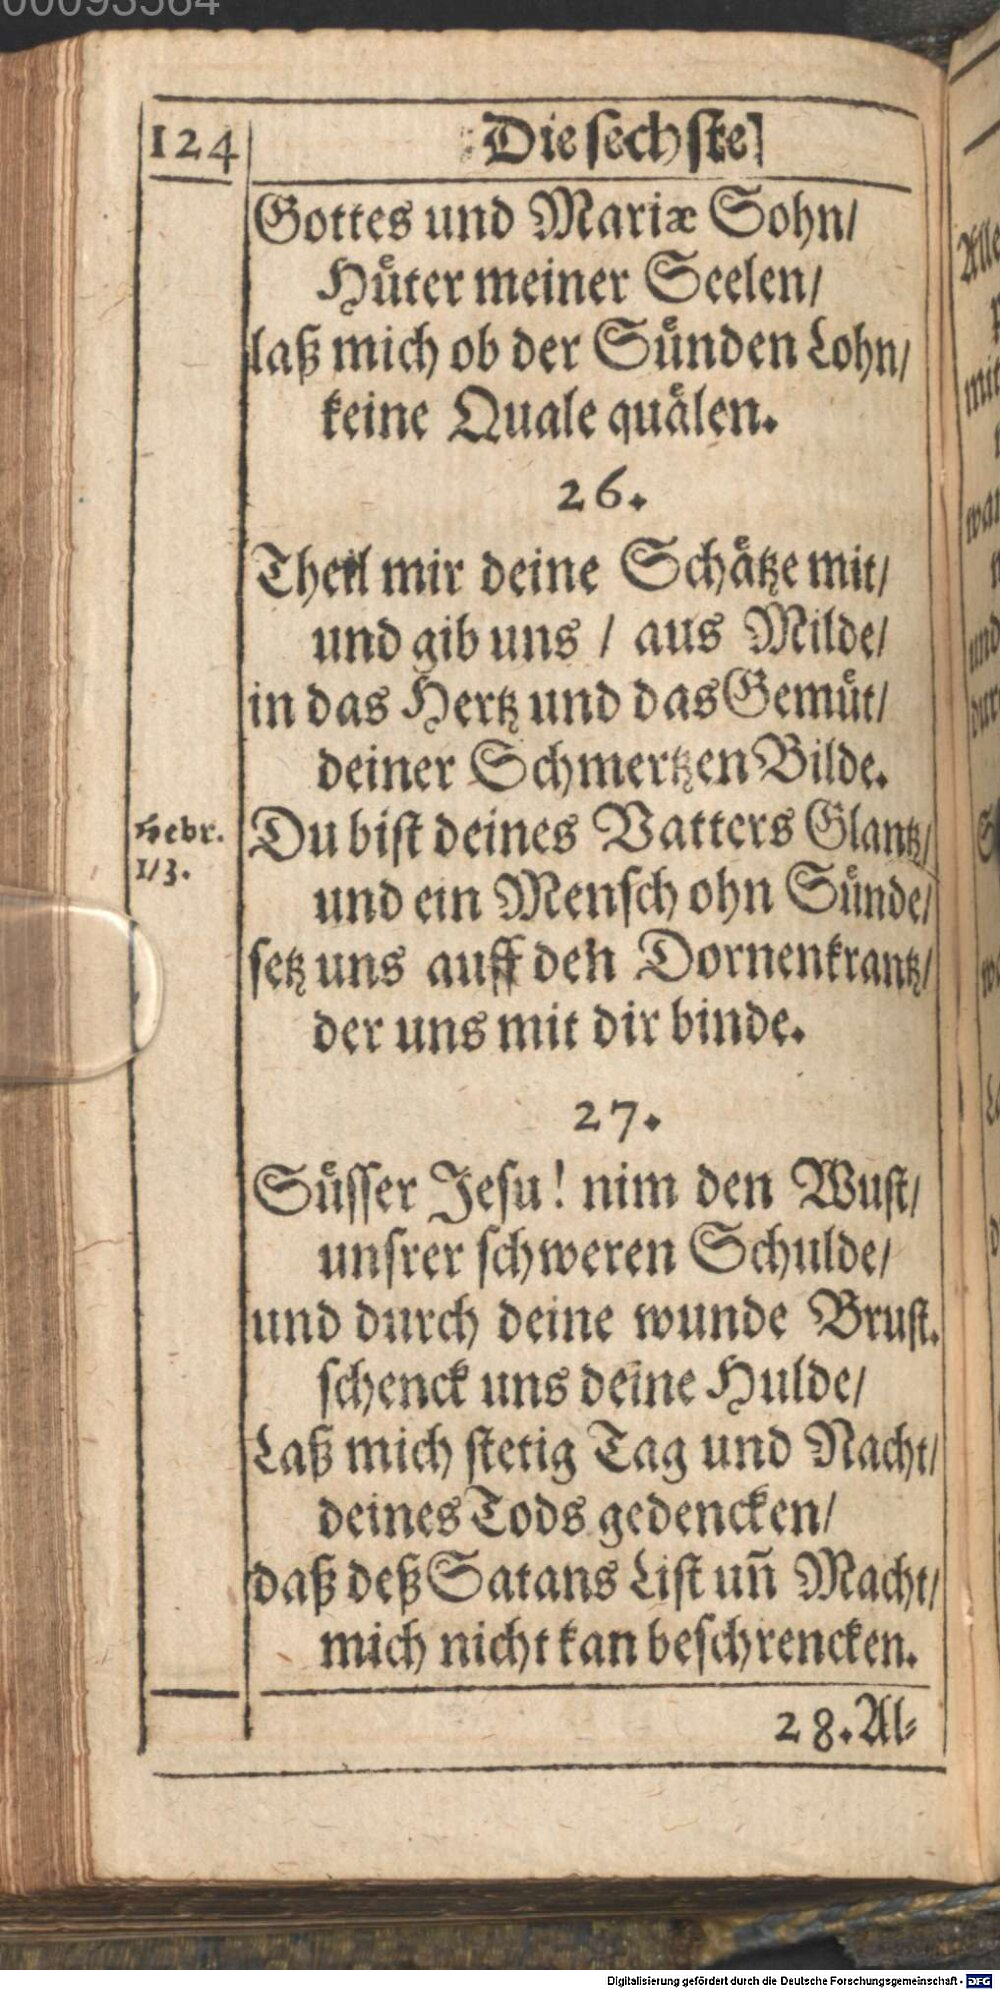 00093564
124
Die sechste]
Gottes und Mariæ Sohn/
Huͤter meiner Seelen/
laß mich ob der Suͤnden Lohn/
keine Quale quaͤlen.
26.
Theil mir deine Schaͤtze mit/
und gib uns / aus Milde/
in das Hertz und das Gemuͤt/
deiner Schmertzen Bilde.
Hebr.
1/3.
Du bist deines Vatters Glantz/
und ein Mensch ohn Suͤnde/
setz uns auff den Dornenkrantz/
der uns mit dir binde.
27.
Suͤsser Jesu! nim den Wust/
unsrer schweren Schulde/
und durch deine wunde Brust.
schenck uns deine Hulde/
Laß mich stetig Tag und Nacht/
deines Tods gedencken/
daß deß Satans List uñ Macht/
mich nicht kan beschrencken.
28. Al-
Digitalisierung gefördert durch die Deutsche Forschungsgemeinschaft - DFG